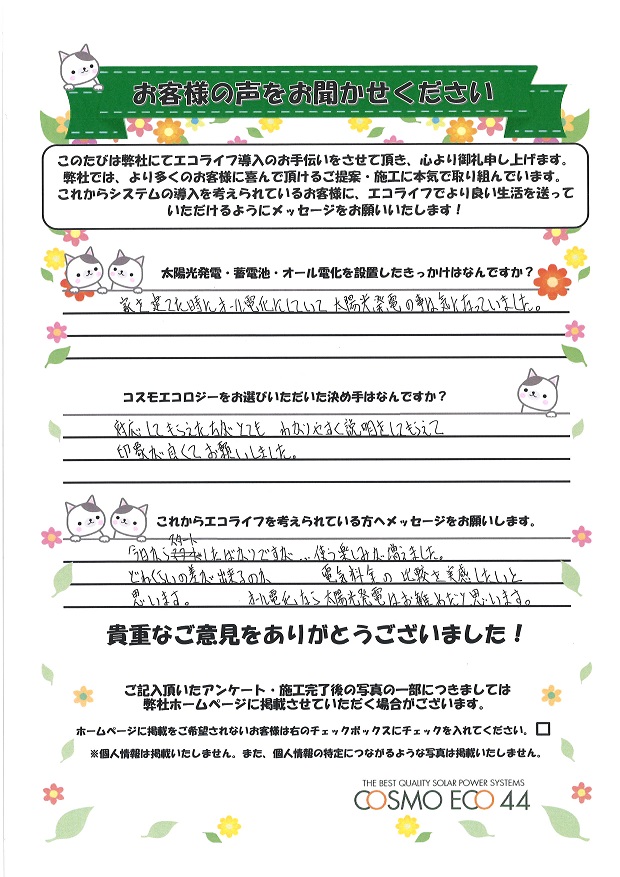 お客様の声をお聞かせください
このたびは弊社にてエコライフ導入のお手伝いをさせて頂き、心より御礼申し上げます。
弊社では、より多くのお客様に喜んで頂けるご提案・施工に本気で取り組んでいます。
これからシステムの導入を考えられているお客様に、エコライフでより良い生活を送って
いただけるようにメッセージをお願いいたします！
太陽光発電・蓄電池・オール電化を設置したきっかけはなんですか？
家を建てた時にオール電化にしていて太陽光発電の事は気になっていました。
コスモエコロジーをお選びいただいた決め手はなんですか？
対応してもらえた方がとても わかりやすく説明をしてもらえて
印象が良くてお願いしました。
これからエコライフを考えられている方へメッセージをお願いします。
スタート
今日からしたばかりですが…使う楽しみが増えました。
どれくらいの差が出来るのか 電気料金の比較を実感したいと
思います。 オール電化なら太陽光発電はお勧めだと思います。
貴重なご意見をありがとうございました！
ご記入頂いたアンケート・施工完了後の写真の一部につきましては
弊社ホームページに掲載させていただく場合がございます。
ホームページに掲載をご希望されないお客様は右のチェックボックスにチェックを入れてください。
※個人情報は掲載いたしません。また、個人情報の特定につながるような写真は掲載いたしません。
THE BEST QUALITY SOLAR POWER SYSTEMS
COSMO ECO 44